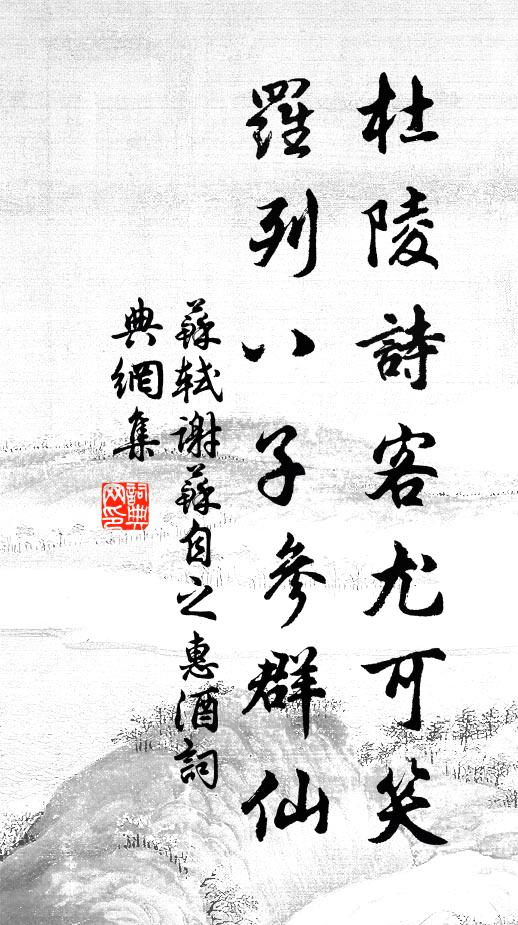 杜陵詩客尤可笑
羅列八子參群仙
蘇軾謝蘇自之惠酒詞
典網集
詞典网印